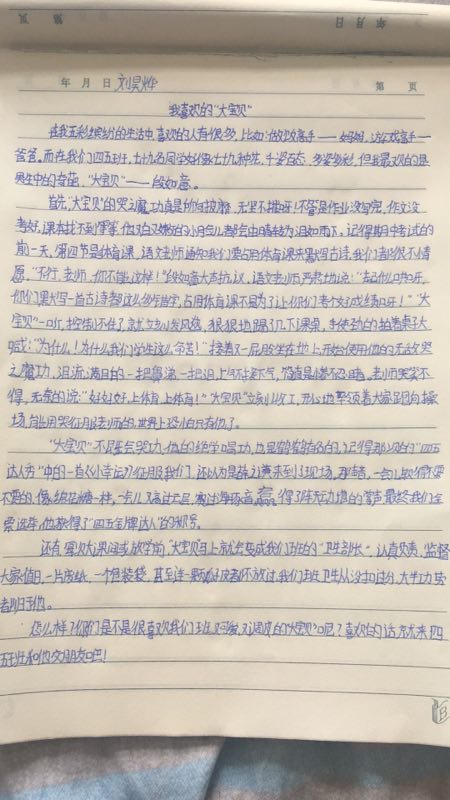 年 月 日 刘昊烨 第 页
我喜欢的“大宝贝”
在我五彩缤纷的生活中,喜欢的人有很多,比如:做饭高手——妈妈,游戏高手——
爸爸。而在我们四五班,七十九名同学好像七十九种花,千姿百态,多姿多彩,但我最欢的是
男生中的奇葩,“大宝贝”——段如意。
首先,“大宝贝”的哭功魔力真是所向披靡,无坚不摧呀!不管是作业没写完,作文没
考好,课本找不到等等,他又白又嫩的小脸儿都会由晴转为泪如雨下。记得期中考试的
前一天,第四节是体育课,语文老师通知我们要占用体育课来默写古诗,我们都很不情
愿,“不行,老师,你不能这样!”段如意大声抗议,语文老师严肃地说:
你们果然写一首古诗都这么费劲,占用体育课不是为了让你们考个好成绩呀!”“大
宝贝”一听,控制不住了,就立刻发风,狠狠地踢了几下课桌,手使劲的拍着桌子大
喊:“为什么!为什么我们学生这么命苦!”接着又一屁股坐在地上开始使用他的无敌哭
之魔功,泪流满目的一把鼻涕一把泪,上气不接下气,简直是惨不忍睹。老师哭笑不
得,无奈的说:“好好好,上体育上体育!”“大宝贝”立刻收工,开心地带领着大家跑向操
场,能用哭征服老师的,世界上恐怕只有他了。
“大宝贝”不只是会哭功,他的绝学唱功,也是鼎鼎有名的,记得那次的“四五
达人秀”中的一首《小幸运》征服我们,还以为是薛之谦来到了现场,那声音,一会儿软绵
的,像棉花糖一样,一会儿又高过云层,赢得了阵阵的掌声,最终我们全
票选举,他获得了“四五金牌达人”的称号。
还有,每次大课间或放学前,“大宝贝”马上就会变成我们班的“卫生部长”,认真负责,监督
大家值日,一片废纸,一个包装袋,甚至连一颗瓜子皮都不放过,我们班卫生从没扣过分,大半功劳
都归于他。
怎么样?你们是不是很喜欢我们班又可爱,又调皮的“大宝贝”呢?喜欢的话就来四
五班和他交朋友吧!